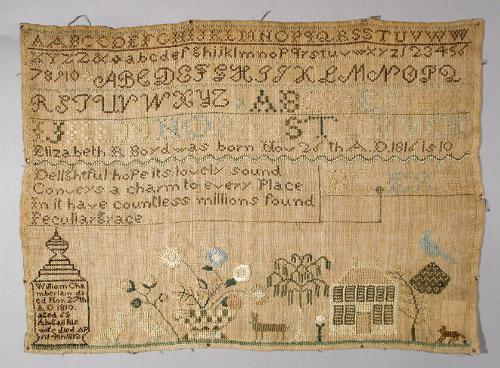 AABCCDEFGHIJKLMNOPQRSSTUVWW
XYZZ&aabcdefghijklmnopqrstuvwxyz123456
78910 ABCDEFGHIJKLMNOPQ
RSTUVWXYZ AB E
NO ST
Elizabeth B Boyd was born Nov 26 th A D 1816 is 10
Delightful hope its lovely sound
Conveys a charm to every Place
In it have countless millions found
Peculiar Grace
William Cha
mberlain di
ed Nov. 27th
A D 1810
aged 63
Abigail his
wife died AP